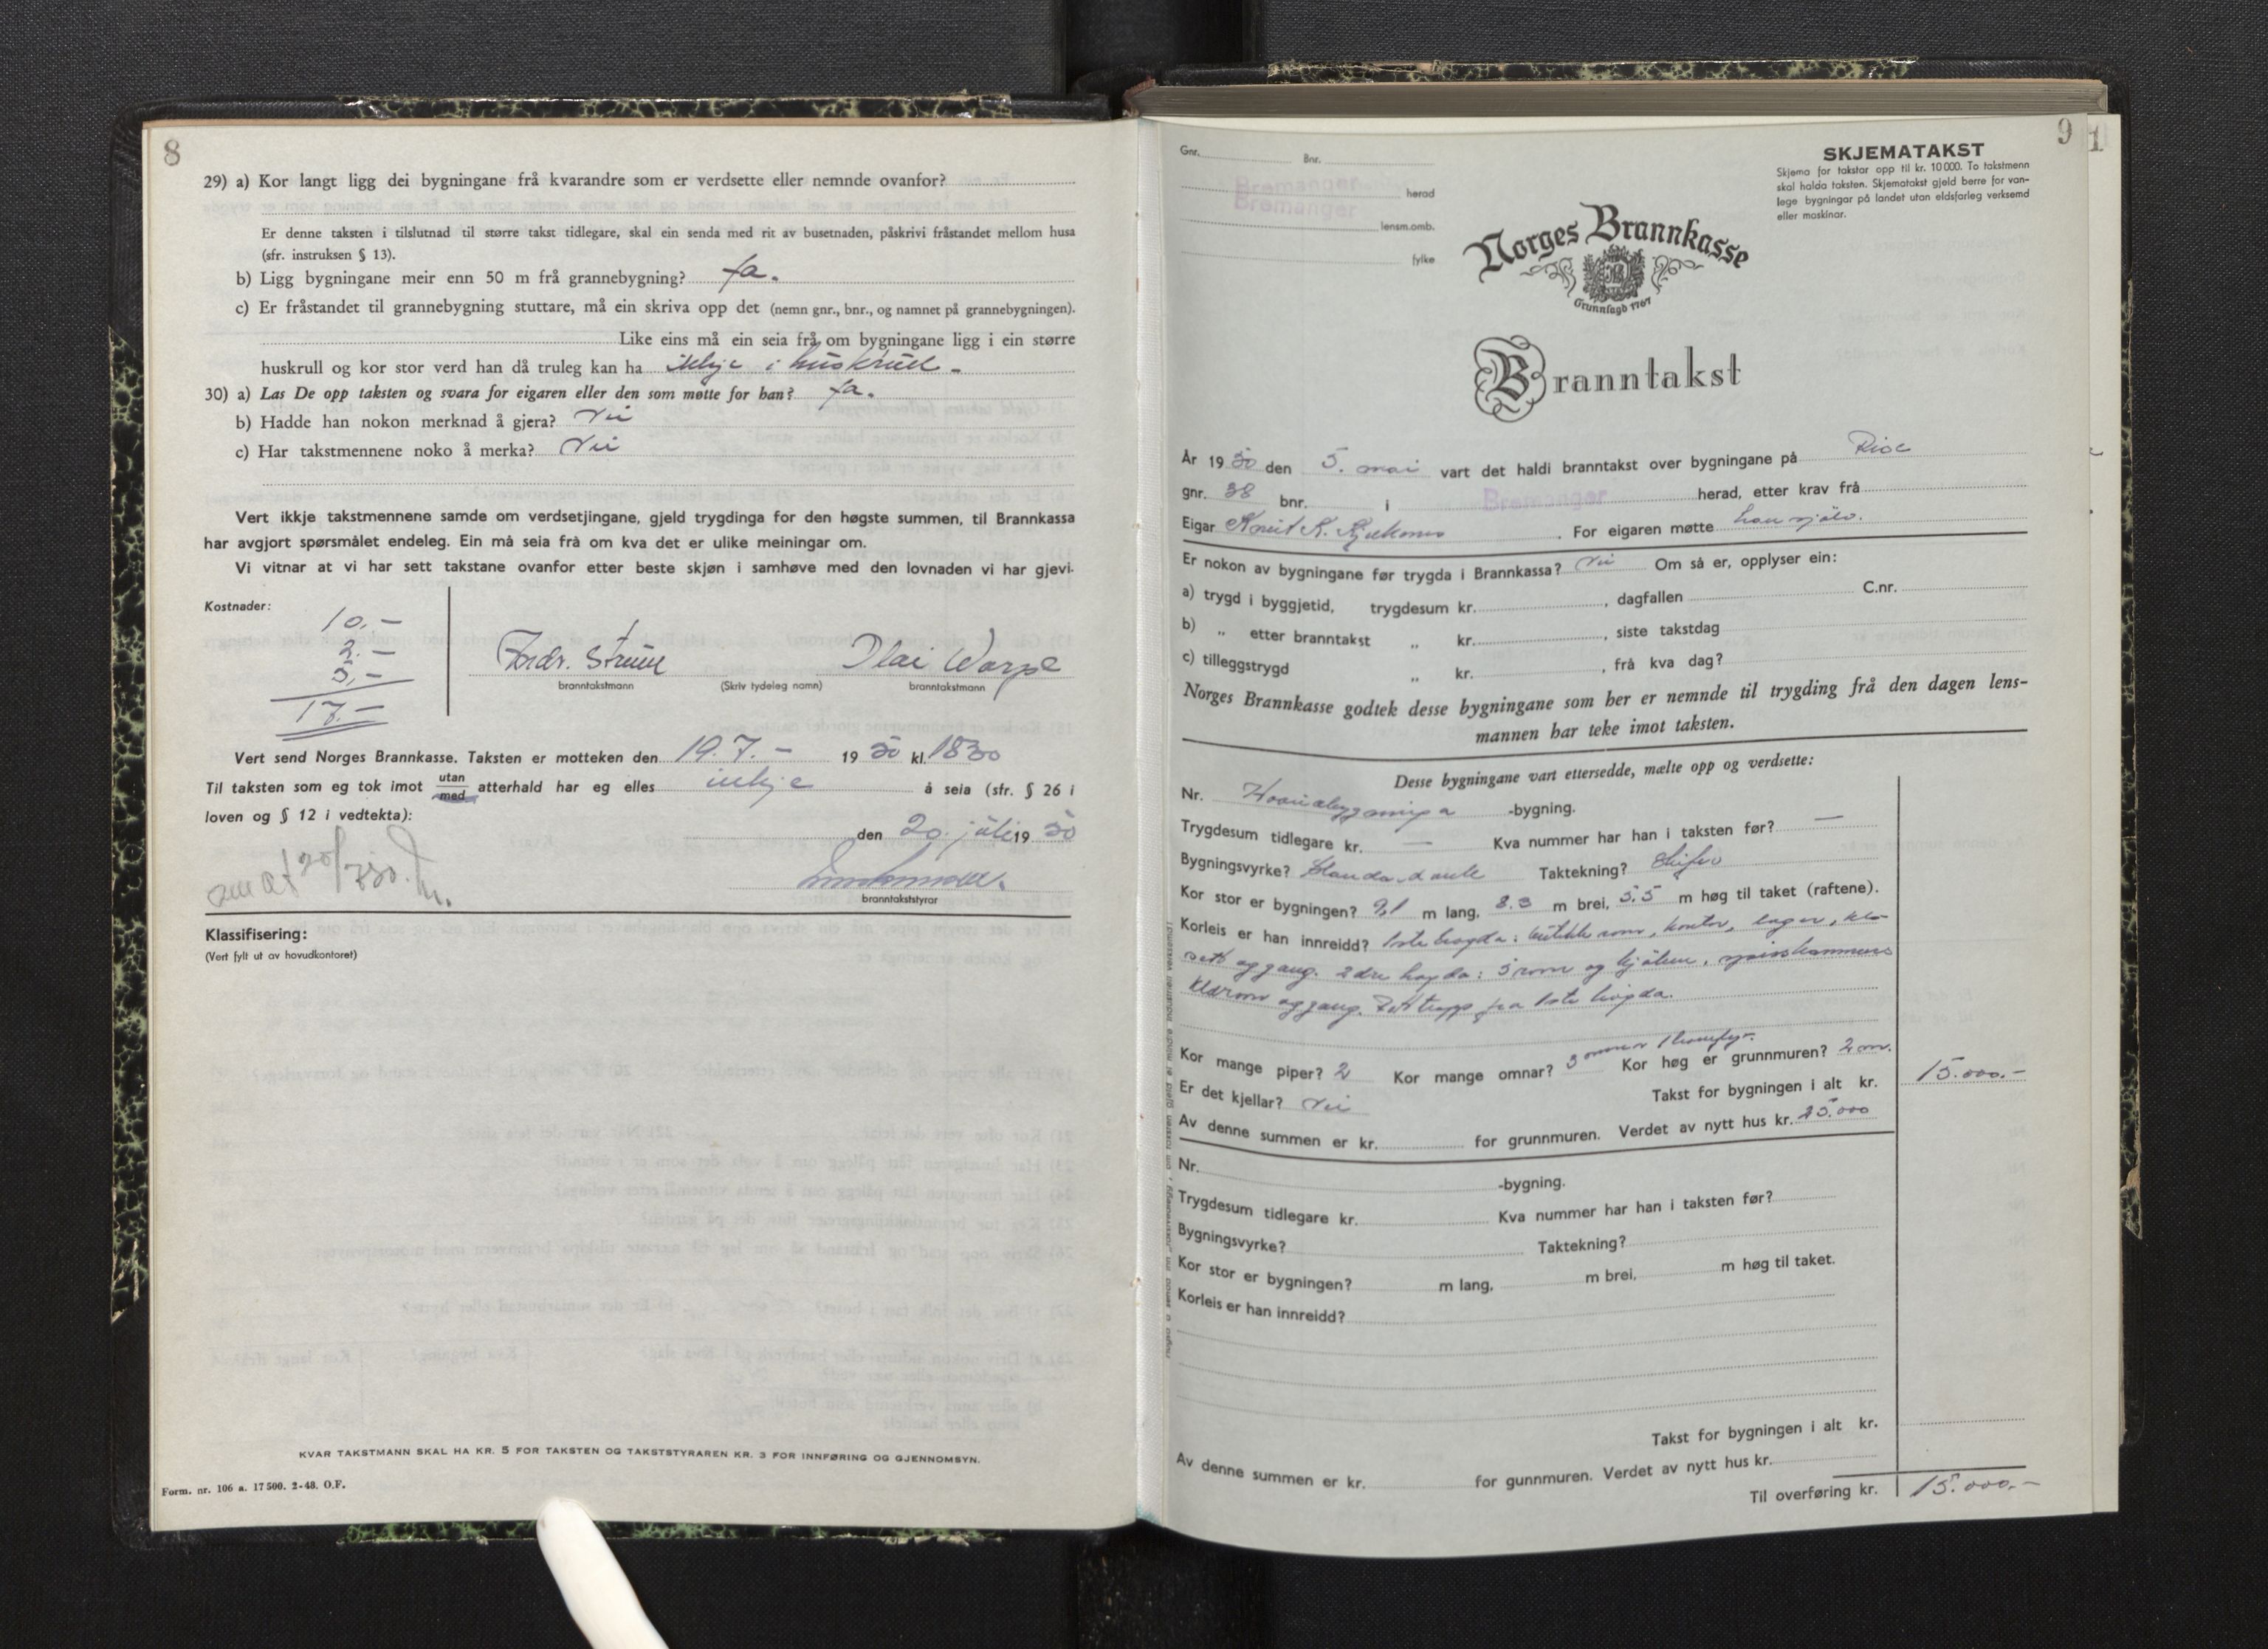 8
29) a) Kor langt ligg dei bygningane frå kvarandre som er verdsette eller nemnde ovanfor?
Er denne taksten i tilslutnad til større takst tidlegare, skal ein senda med rit av busetnaden, påskrivi fråstandet mellom husa
(sfr. instruksen § 13).
b) Ligg bygningane meir enn 50 m frå grannebygning? Ja.
c) Er fråstandet til grannebygning stuttare, må ein skriva opp det (nemn gnr., bnr., og namnet på grannebygningen).
Like eins må ein seia frå om bygningane ligg i ein større
huskrull og kor stor verd han då truleg kan ha ikkje i huskrull -
30) a) Las De opp taksten og svara for eigaren eller den som møtte for han? Ja.
b) Hadde han nokon merknad å gjera? Nei
c) Har takstmennene noko å merka? Nei
Vert ikkje takstmennene samde om verdsetjingane, gjeld trygdinga for den høgste summen, til Brannkassa
har avgjort spørsmålet endeleg. Ein må seia frå om kva det er ulike meiningar om.
Vi vitnar at vi har sett takstane ovanfor etter beste skjøn i samhøve med den lovnaden vi har gjevi.
Kostnader:
10,-
2.-
5,-
17.-
Fredr. Strum Olai Warpe
branntakstmann (Skriv tydeleg namn) branntakstmann
Vert send Norges Brannkasse. Taksten er motteken den 19.7.- 1950 kl. 1830
Til taksten som eg tok imot utan/med atterhald har eg elles inkje å seia (sfr. § 26 i
loven og § 12 i vedtekta):
den 20. juli 1950
branntakststyrar
Klassifisering:
(Vert fylt ut av hovudkontoret)
KVAR TAKSTMANN SKAL HA KR. 5 FOR TAKSTEN OG TAKSTSTYRAREN KR. 3 FOR INNFØRING OG GJENNOMSYN.
Form. nr. 106 a. 17 500. 2-48. O.F.
9
1
Gnr. Bnr.
Bremanger
Bremanger herad
lensm.omb.
fylke
SKJEMATAKST
Skjema for takstar opp til kr. 10 000. To takstmenn
skal halda taksten. Skjematakst gjeld berre for van-
lege bygningar på landet utan eldsfarleg verksemd
eller maskinar.
Norges Brannkasse
Grunnlagd 1767
Branntakst
År 1950 den 5. mai vart det haldi branntakst over bygningane på Rise
gnr. 38 bnr. i Bremanger herad, etter krav frå
Eigar Knut K. For eigaren møtte han sjølv.
Er nokon av bygningane før trygda i Brannkassa? Nei Om så er, opplyser ein:
a) trygd i byggjetid, trygdesum kr. , dagfallen C.nr.
b) „ etter branntakst „ kr. , siste takstdag
c) tilleggstrygd „ kr. , frå kva dag?
Norges Brannkasse godtek desse bygningane som her er nemnde til trygding frå den dagen lens-
mannen har teke imot taksten.
Desse bygningane vart ettersedde, mælte opp og verdsette:
Nr. Hovudbygninga -bygning.
Trygdesum tidlegare kr. — Kva nummer har han i taksten før? —
Bygningsvyrke? Taktekning? Skifer
Kor stor er bygningen? 9,1 m lang, 8.3 m brei, 5.5 m høg til taket (raftene).
Korleis er han innreidd? 1ste høgda: butikk rom, kontor, lager, klo-
sett og gang. 2dre høgda: 5 rom og kjøken, spisskammers
klærom og gang. Ett trapp fra 1ste høgda.
Kor mange piper? 2 Kor mange omnar? 3 omnar 1 komfyr. Kor høg er grunnmuren? 2 m.
Er det kjellar? Nei Takst for bygningen i alt kr. 15.000.-
Av denne summen er kr. for grunnmuren. Verdet av nytt hus kr. 25.000
Nr. -bygning.
Trygdesum tidlegare kr. Kva nummer har han i taksten før?
Bygningsvyrke? Taktekning?
Kor stor er bygningen? m lang, m brei, m høg til taket.
Korleis er han innreidd?
Takst for bygningen i alt kr.
Av denne summen er kr. for gunnmuren. Verdet av nytt hus kr.
Til overføring kr. 15.000.-